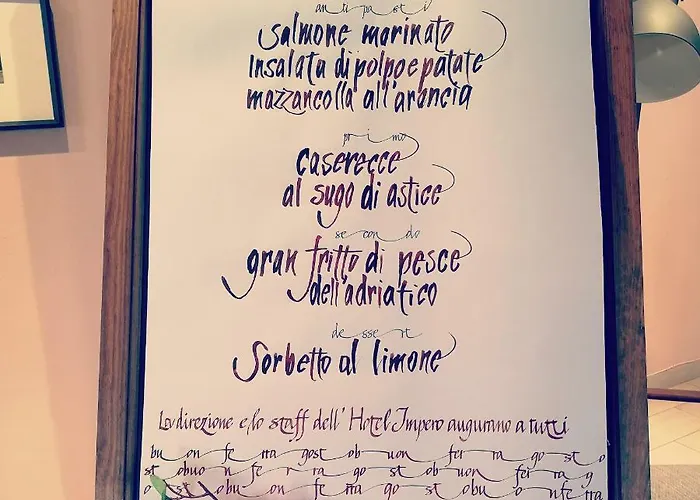 antipasti
salmone marinato
insalata di polpo e patate
mazzancolla all'arancia
primo
caserecce
al sugo di astice
secondo
gran fritto di pesce
dell'adriatico
dessert
Sorbetto al limone
La direzione e lo staff dell' Hotel Impero augurano a tutti
bu on fe rra gost ob uon fer ra go st o
st obuo n fe r ra go st ob uon fer ra g
o st obu on fe rra go st obu o n fe rra